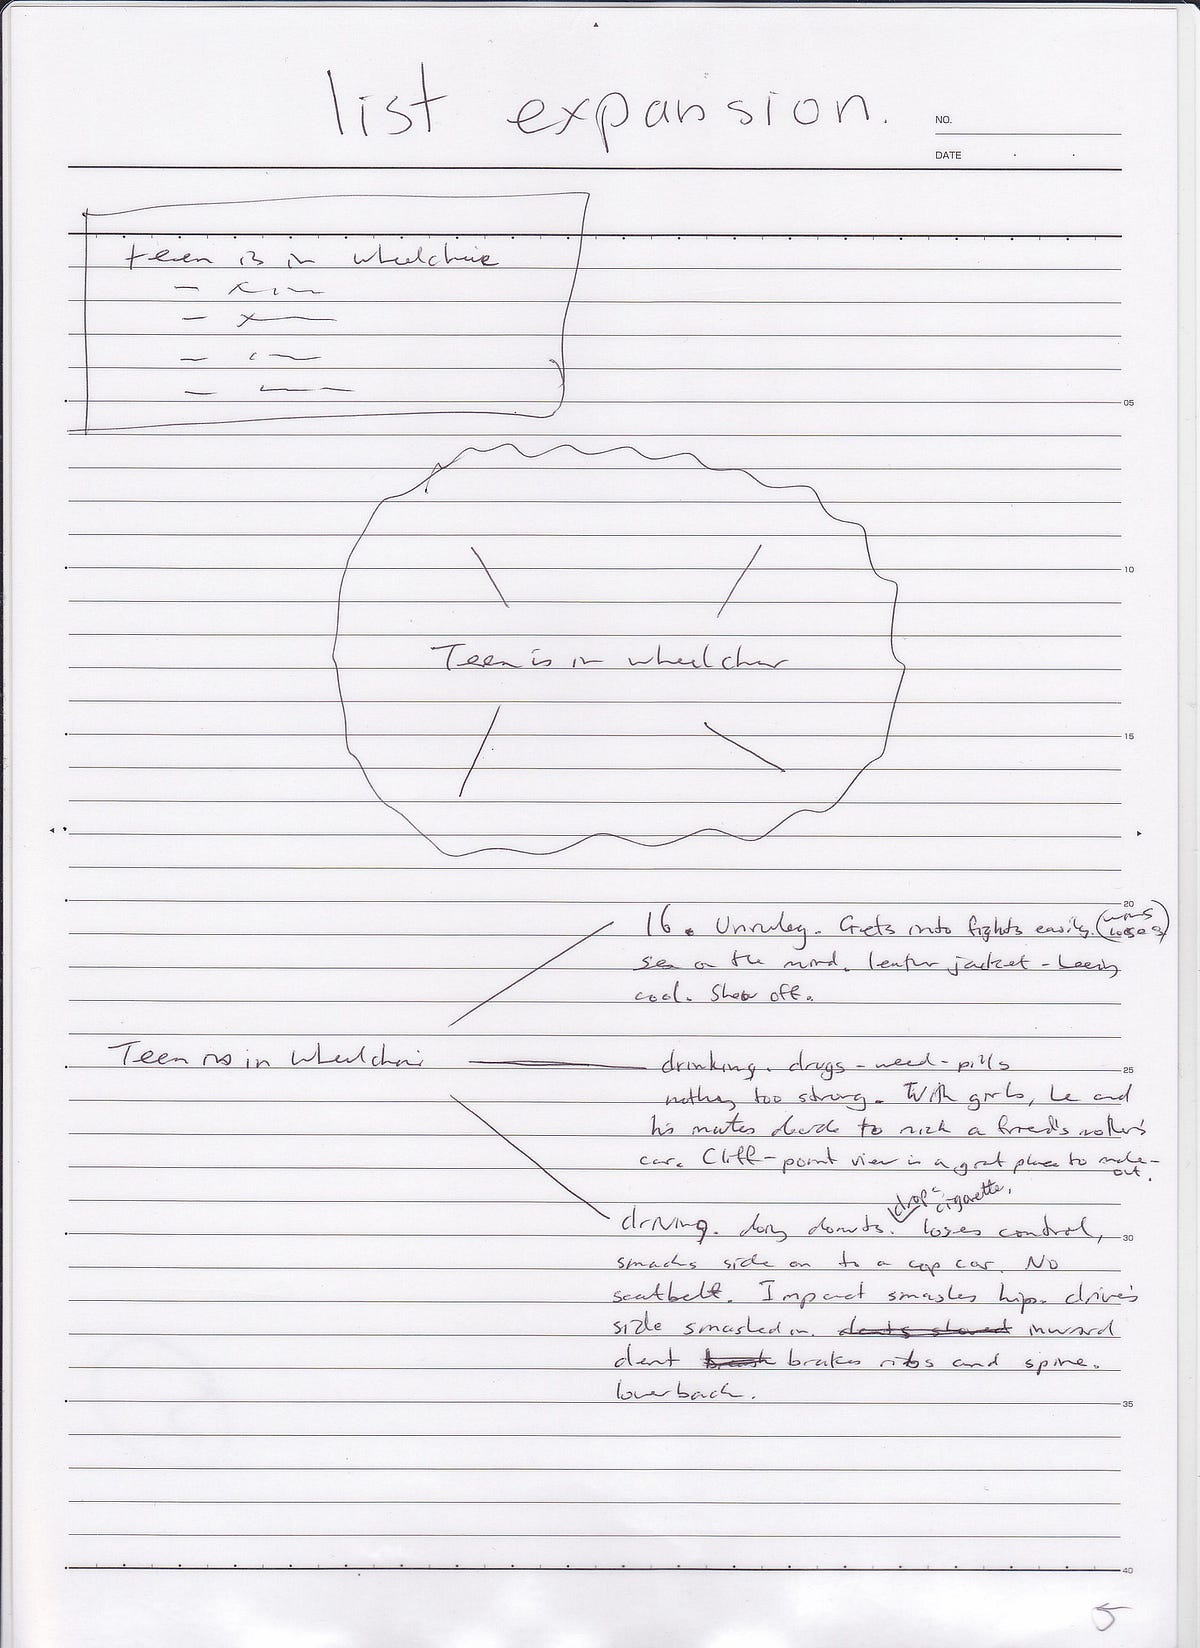 list expansion.
NO.
DATE
teen is in wheelchair
05
10
Teen is in wheelchair
15
20
16. Unruley. Gets into fights easily. (wins loses)
sex on the mind. leather jacket - being
cool. Show off.
Teen is in wheelchair
25
drinking. drugs - weed - pills
nothing too strong. With girls, he and
his mates decide to nick a friend's mother's
car. Cliff-point view is a great place to make-
out.
drops cigarette.
driving. doing donuts. loses control,
30
smacks side on to a cop car. No
seatbelt. Impact smashes hip. driver's
side smashed in. inward
dent brakes ribs and spine.
lower back.
35
40
5